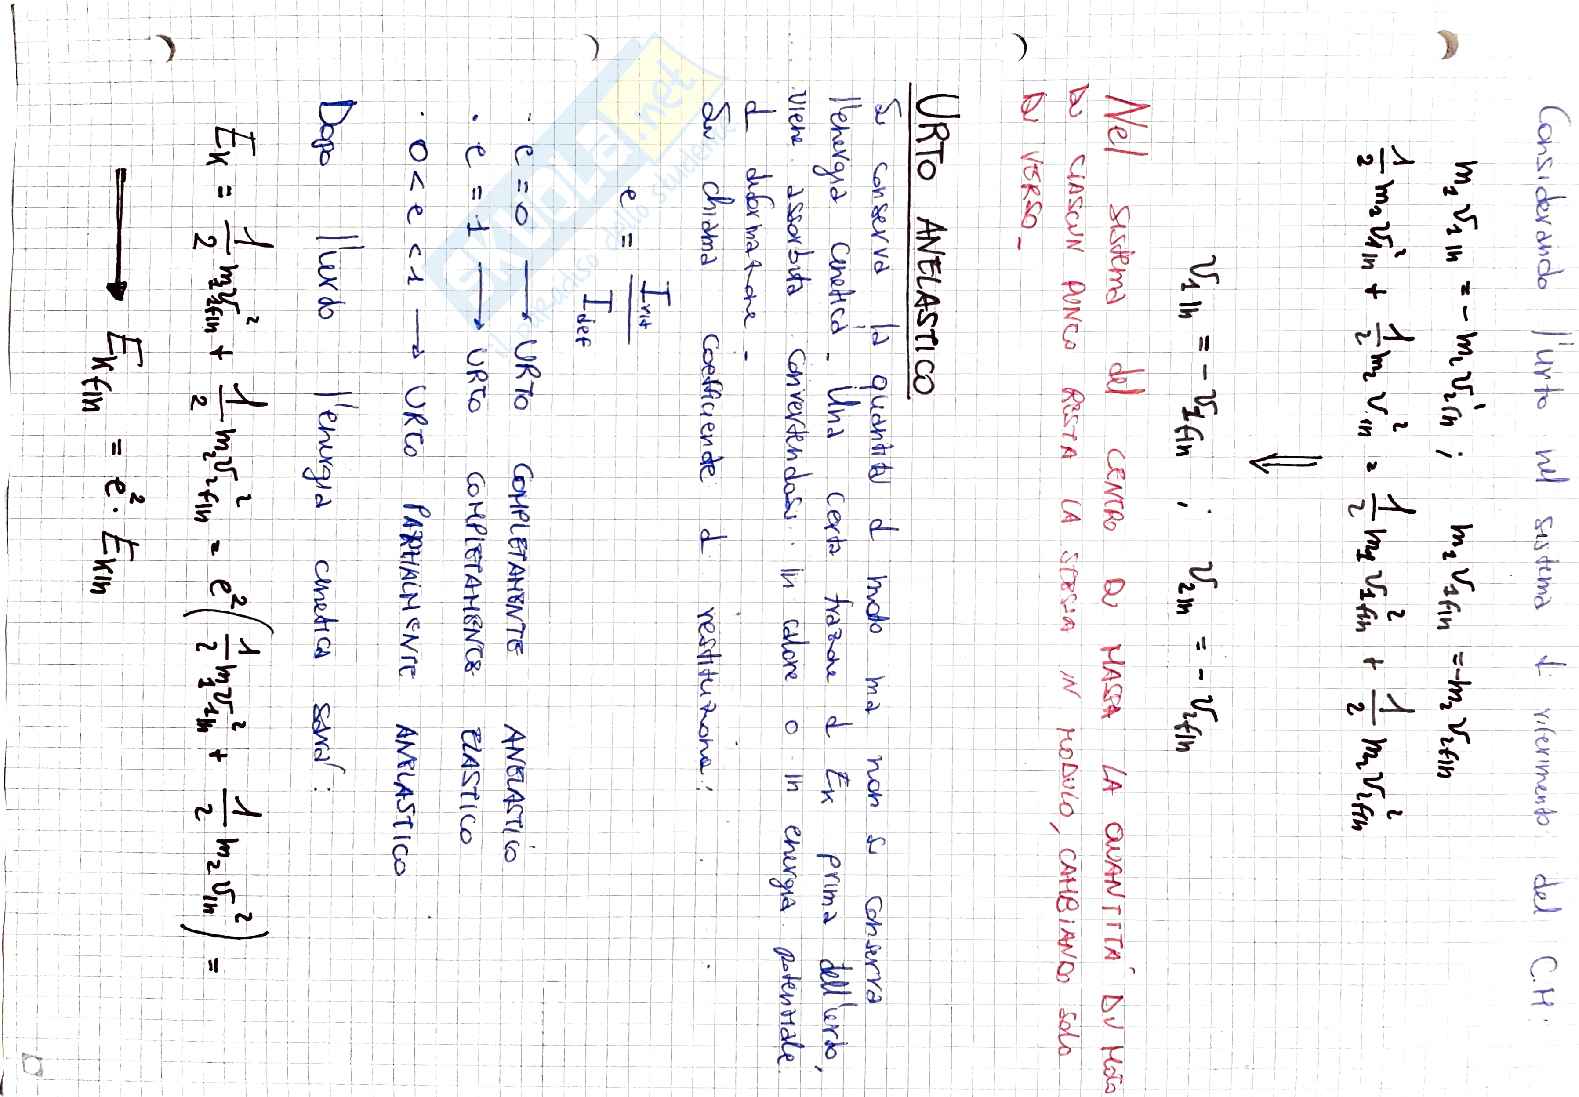 Considerando l'urto nel sistema d riferimento del C.M.
m₁v₁in = -m₂v₂in ; m₁v₁fin = -m₂v₂fin
1/2 m₁v₁in² + 1/2 m₂v₂in² = 1/2 m₁v₁fin² + 1/2 m₂v₂fin²
⇓
v₁in = -v₁fin ; v₂in = -v₂fin
Nel sistema del CENTRO DI MASSA LA QUANTITA' DI MOTO
DI CIASCUN PUNTO RESTA LA STESSA IN MODULO, CAMBIANDO SOLO
DI VERSO_
URTO ANELASTICO
Si conserva la quantità d moto ma non si conserva
l'energia cinetica. Una certa frazione d Ek prima dell'urto,
viene assorbita convertendosi in calore o in energia potenziale
d deformazione.
Si chiama coefficiente d restituzione:
e = Irit / Idef
· e = 0 → URTO COMPLETAMENTE ANELASTICO
· e = 1 → URTO COMPLETAMENTE ELASTICO
· 0 < e < 1 → URTO PARZIALMENTE ANELASTICO
Dopo l'urto l'energia cinetica sarà:
Ek = 1/2 m₁v₁fin² + 1/2 m₂v₂fin² = e² (1/2 m₁v₁in² + 1/2 m₂v₂in²) =
→ Ekfin = e² · Ekin
SKUOLA.net
il paradiso dello studente